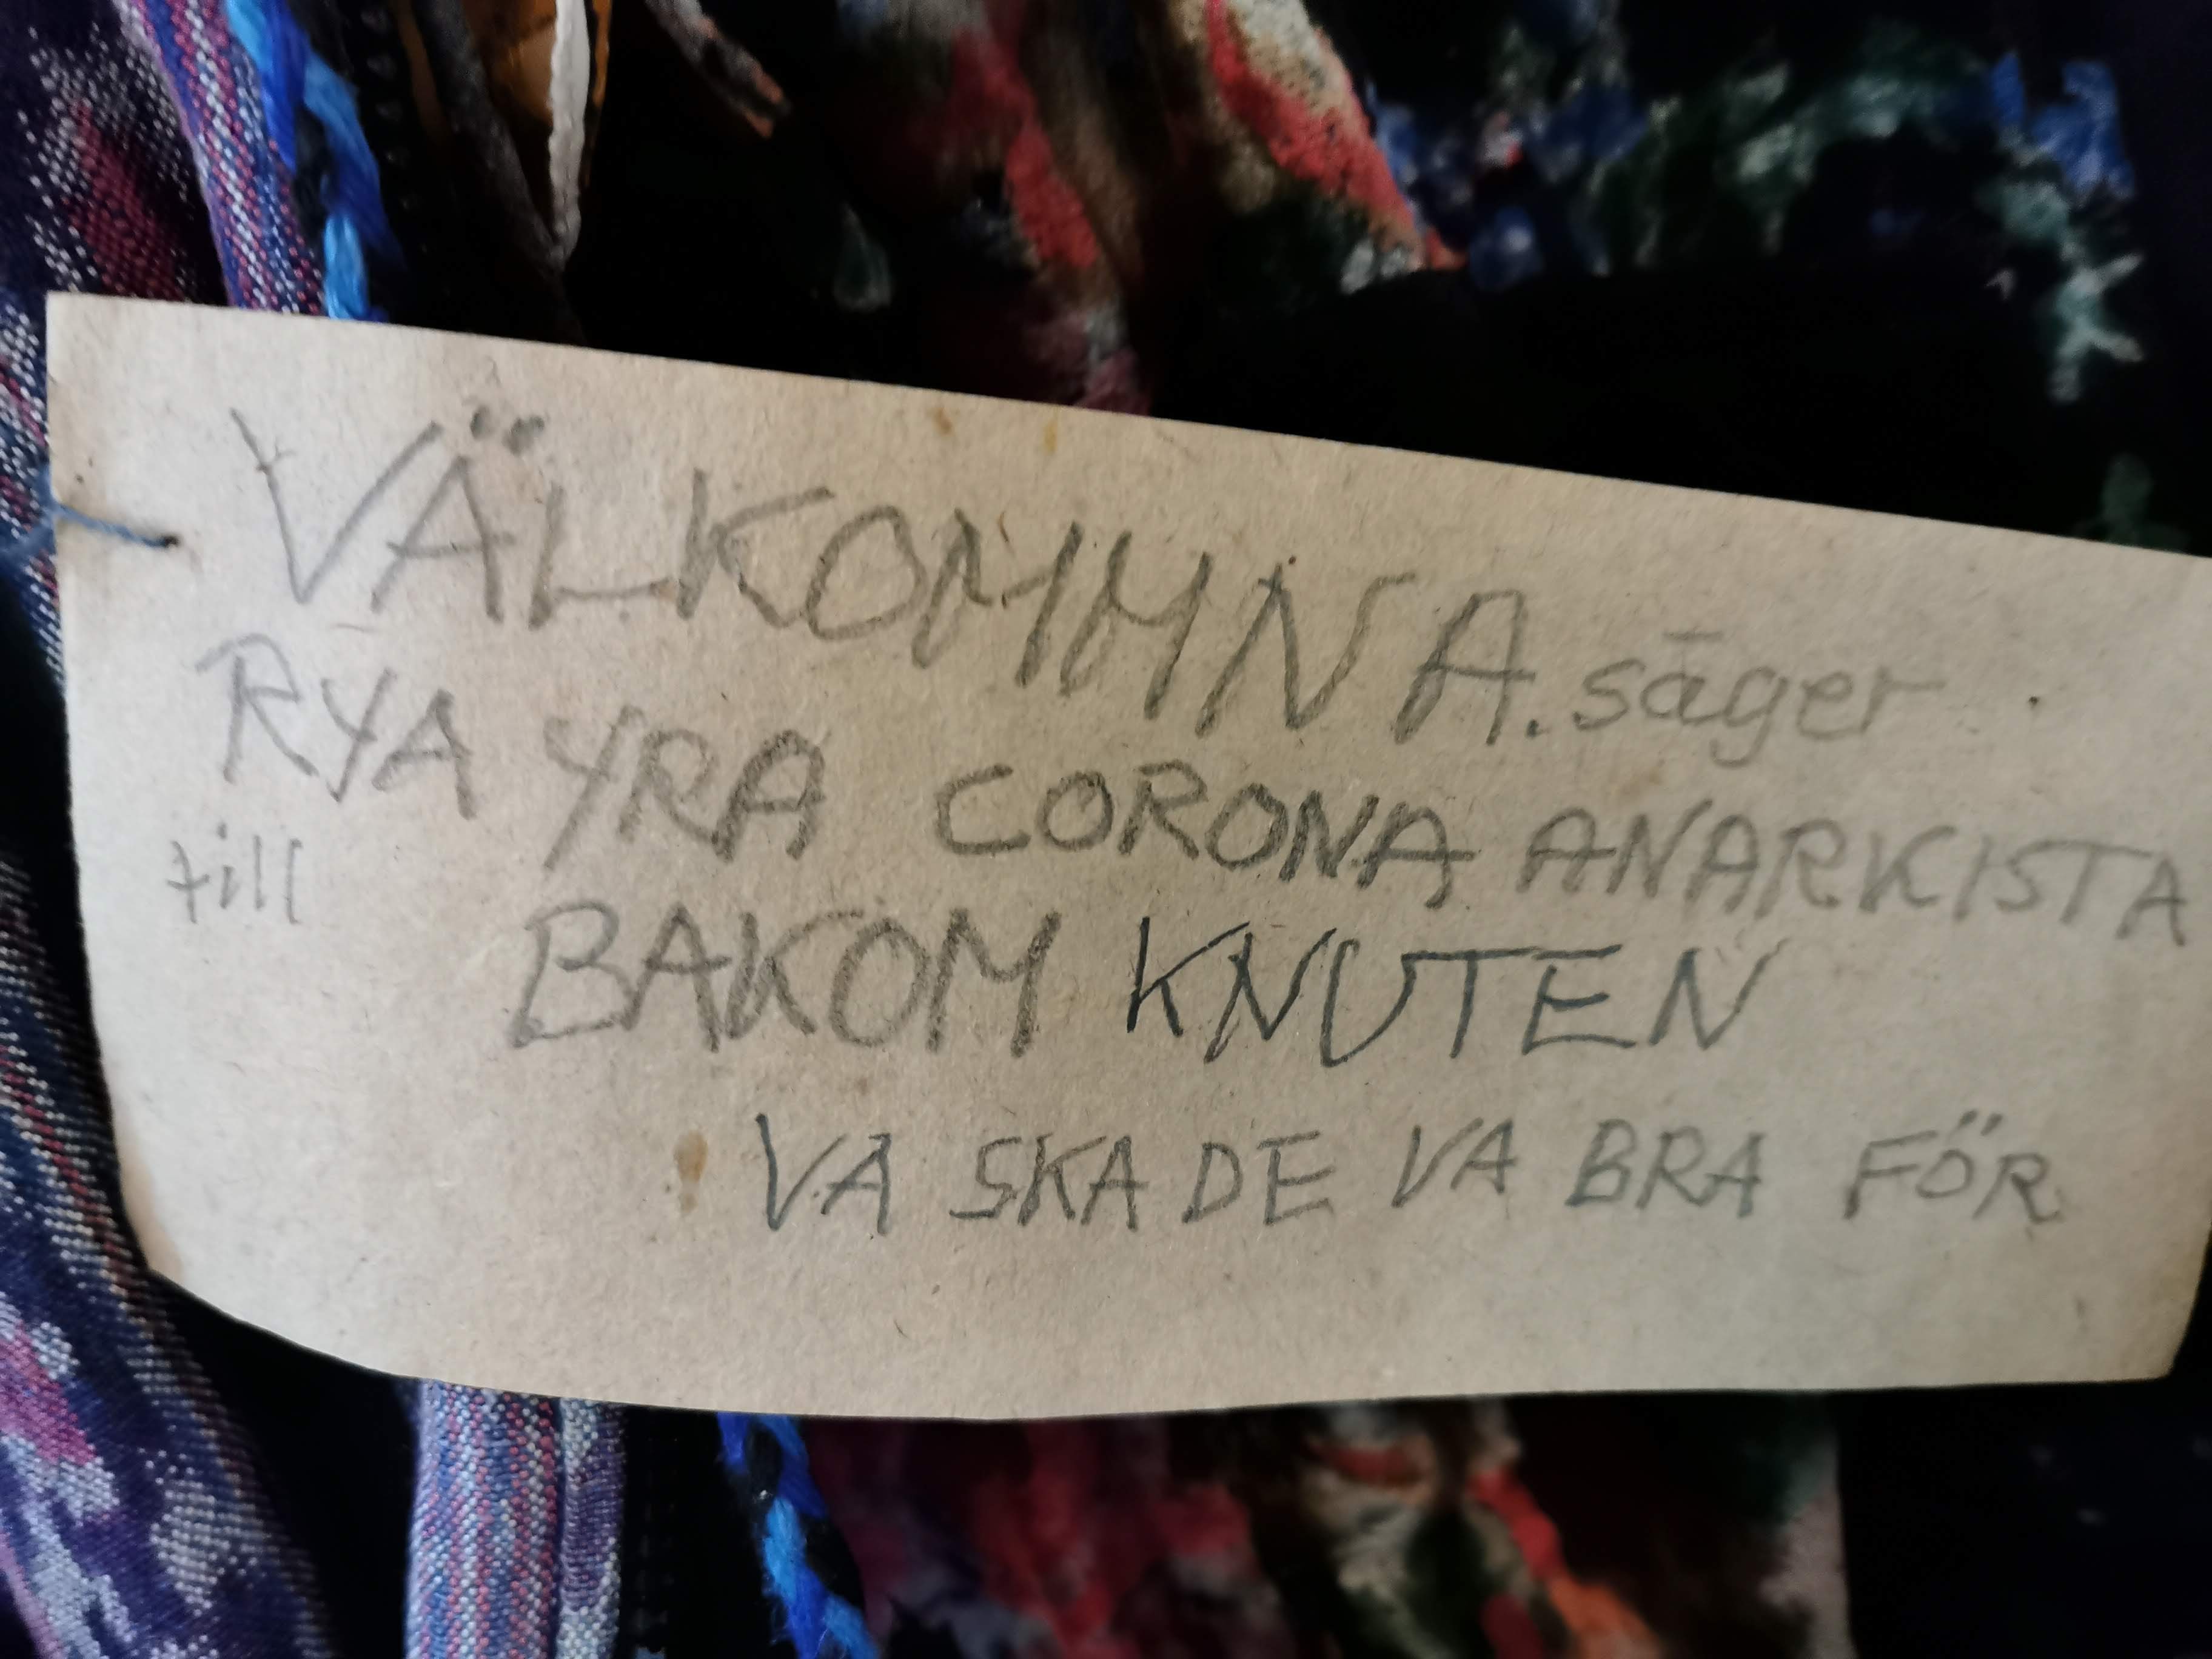 VÄLKOMMNA. säger
RYA YRA CORONA ANARKISTA
till
BAKOM KNUTEN
VA SKA DE VA BRA FÖR